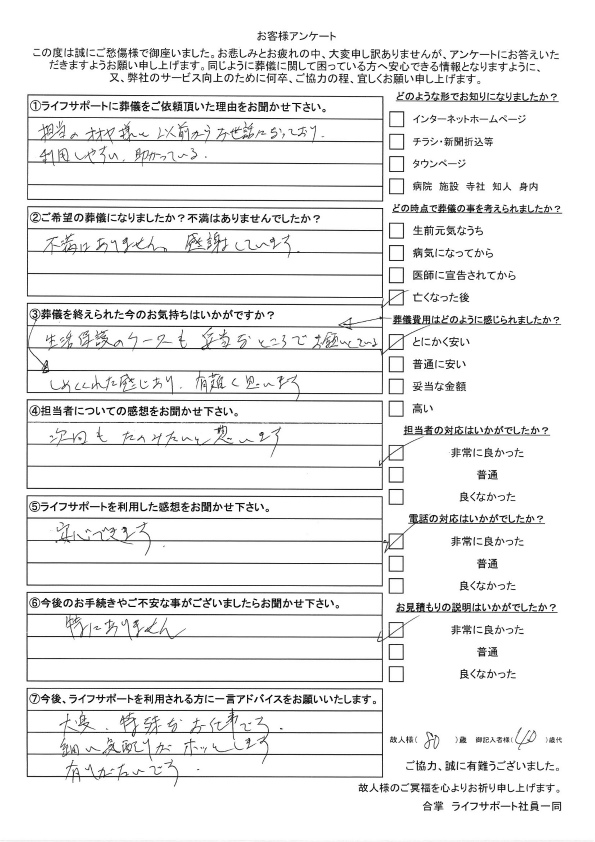 お客様アンケート
この度は誠にご愁傷様で御座いました。お悲しみとお疲れの中、大変申し訳ありませんが、アンケートにお答えいた
だきますようお願い申し上げます。同じように葬儀に関して困っている方へ安心できる情報となりますように、
又、弊社のサービス向上のために何卒、ご協力の程、宜しくお願い申し上げます。
①ライフサポートに葬儀をご依頼頂いた理由をお聞かせ下さい。
担当の 様と 以前からお世話になっており、
利用しやすい、助かっている。
②ご希望の葬儀になりましたか?不満はありませんでしたか?
不満はありません。感謝しています
③葬儀を終えられた今のお気持ちはいかがですか?
生活保護のケースも 妥当なところでお願いしている
しめくくれた感じあり、有難く思います
④担当者についての感想をお聞かせ下さい。
次回もたのみたいと思います
⑤ライフサポートを利用した感想をお聞かせ下さい。
安心できます
⑥今後のお手続きやご不安な事がございましたらお聞かせ下さい。
特にありません
⑦今後、ライフサポートを利用される方に一言アドバイスをお願いいたします。
大変、特殊なお仕事です。
細い気配りがホッとします
有りがたいです
どのような形でお知りになりましたか?
インターネットホームページ
チラシ・新聞折込等
タウンページ
病院 施設 寺社 知人 身内
どの時点で葬儀の事を考えられましたか?
生前元気なうち
病気になってから
医師に宣告されてから
亡くなった後
葬儀費用はどのように感じられましたか?
とにかく安い
普通に安い
妥当な金額
高い
担当者の対応はいかがでしたか?
非常に良かった
普通
良くなかった
電話の対応はいかがでしたか?
非常に良かった
普通
良くなかった
お見積もりの説明はいかがでしたか?
非常に良かった
普通
良くなかった
故人様( 80 )歳 御記入者様( 40 )歳代
ご協力、誠に有難うございました。
故人様のご冥福を心よりお祈り申し上げます。
合掌 ライフサポート社員一同